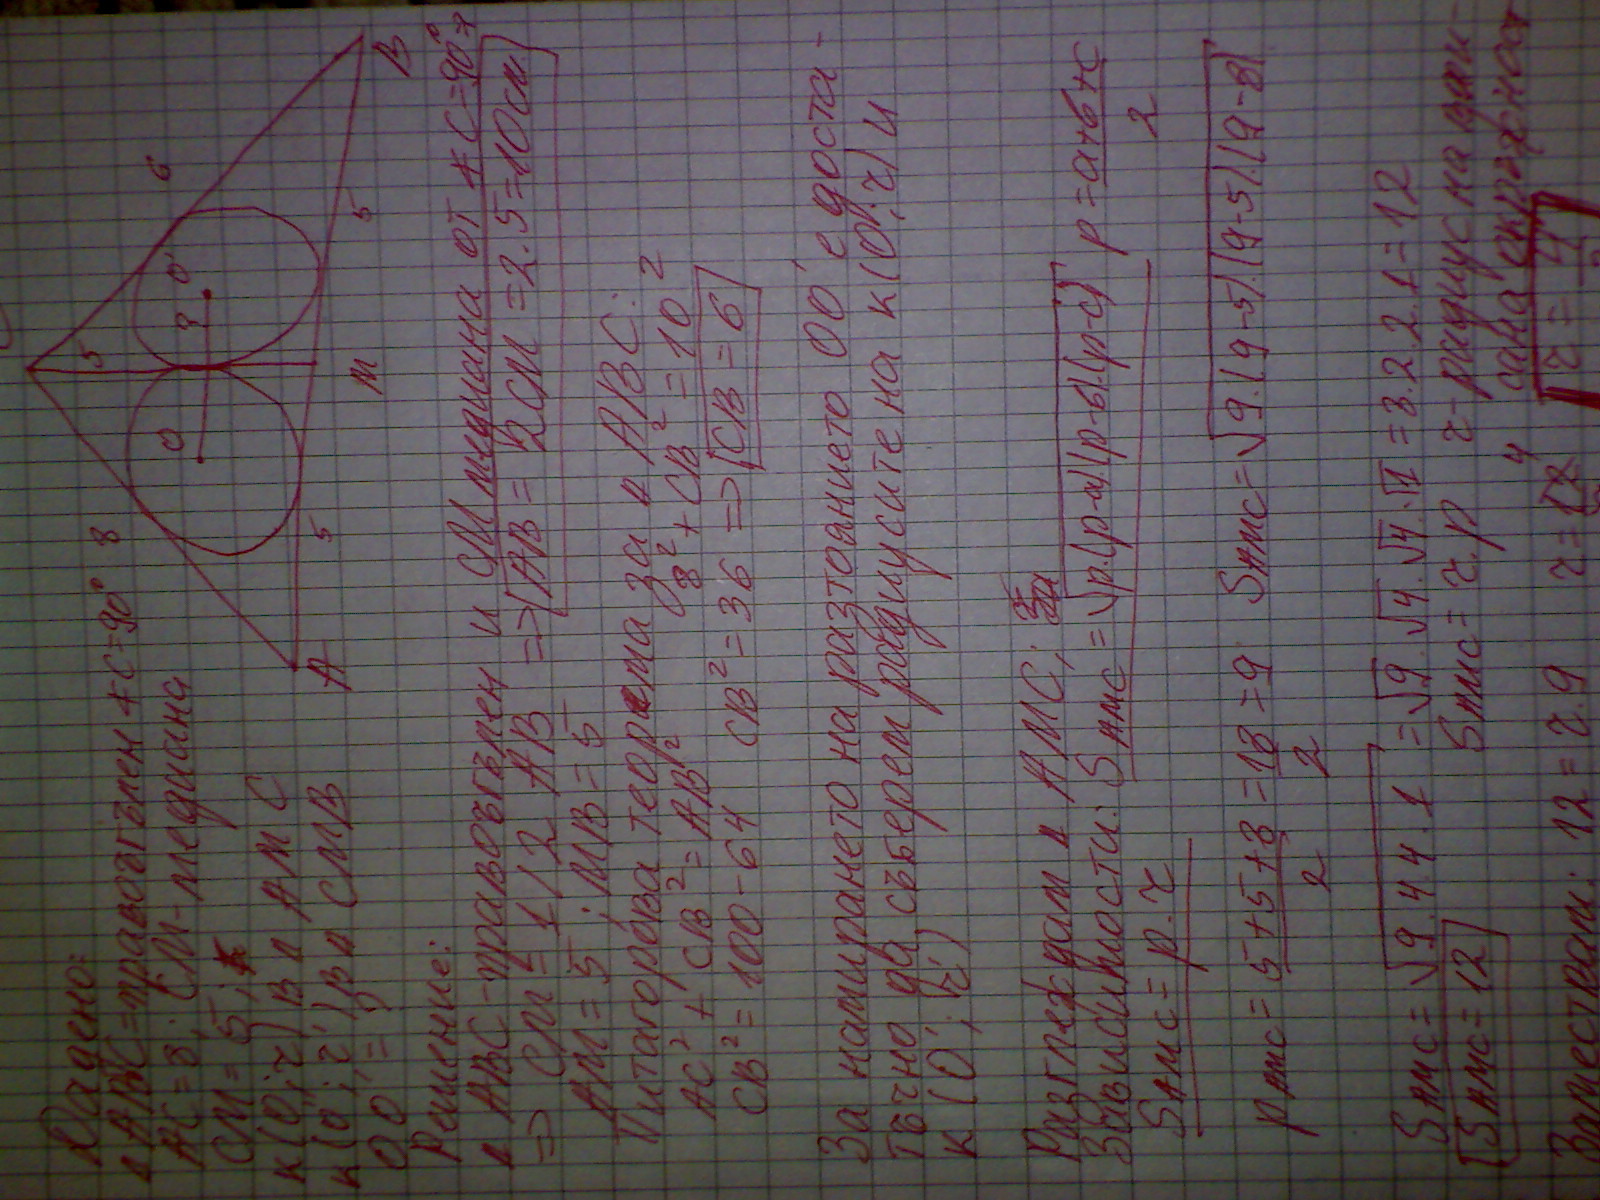 Дадено:
△ ABC = правоъгълен ∢ C = 90°
AC = 8; CM - медиана
CM = 5;
k(O; r) в △ AMC
k(O'; r') в △ CMB
OO' = ?
8
6
5
5
5
O
?
O'
M
A
B
Решение:
△ ABC - правоъгълен и CM медиана от ∢ C = 90° =>
=> CM = 1/2 AB => AB = 2CM = 2.5 = 10 см.
AM = 5; MB = 5
Питагорова теорема за △ ABC:
AC² + CB² = AB² 8² + CB² = 10²
CB² = 100 - 64 CB² = 36 => CB = 6
За намирането на разтоянието OO' е доста-
тъчно да съберем радиусите на k(O; r) и
k(O'; r')
Разглеждам △ AMC;
Зависимости: S AMC = √p.(p-a)(p-b).(p-c) p = a+b+c / 2
S AMC = p.r
P AMC = 5+5+8 / 2 = 18 / 2 = 9 S AMC = √9.(9-5).(9-5).(9-8)
S AMC = √9.4.4.1 = √9.√4.√4.√1 = 3.2.2.1 = 12
S AMC = 12 S AMC = r.p r - радиус на впи-
сана окръжност
Заместваме: 12 = r.9 r = 12 4 r = 4